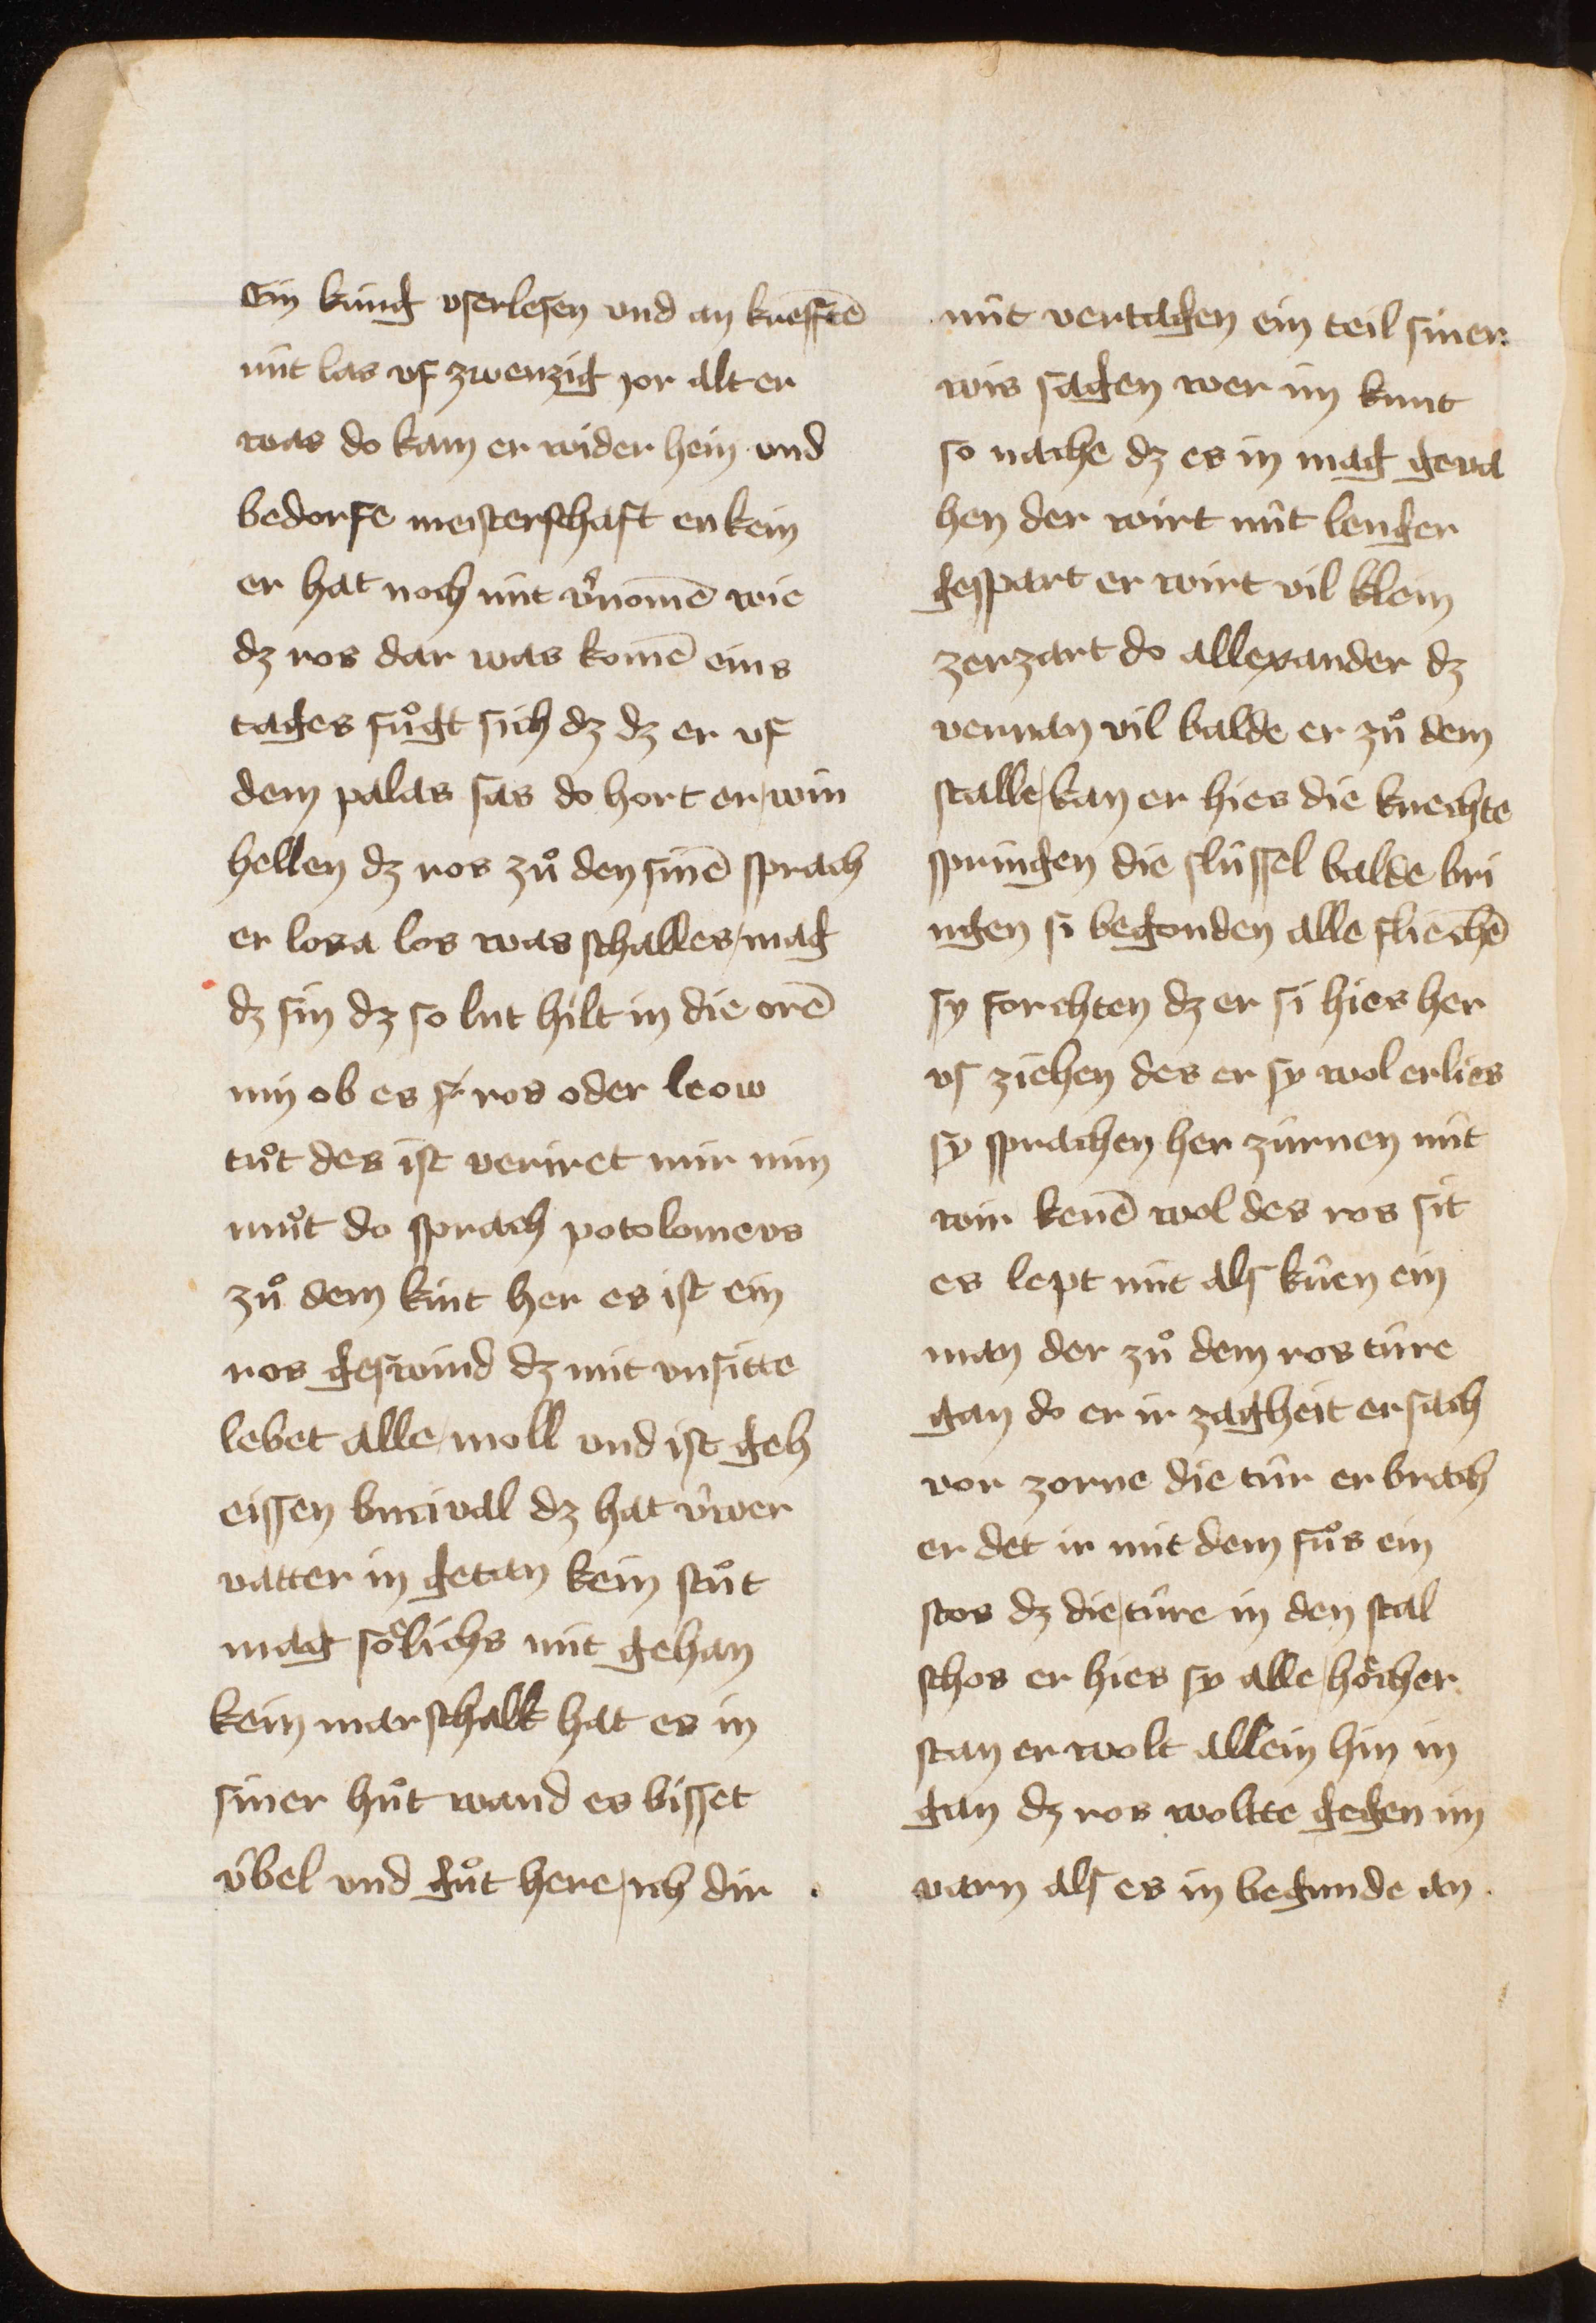 Ein kúnig vserlesen vnd an krefftē
nút las vf zwenzig jor alt er
was do kam er wider hein vnd
bedorfe meisterschaft enkein
er hat noch nút v͛nomē wie
dz ros dar was komē eins
tages fuͦgt sich dz dz er vf
dem palas sas do hort er win
hellen dz ros zuͦ den sinē sprach
er losa los was schalles mag
dz sin dz so lut hilt in die orē
min ob es si ros oder leow
tuͦt des ist veriret mir min
muͦt do sprach potolomevs
zuͦ dem kint her es ist ein
ros geswind dz mit vnsitte
lebet alle moll vnd ist geh
eissen bucival dz hat v́wer
vatter in getan kein stuͦt
mag soͤlichs nút gehan
kein marschalk hat es in
siner huͦt wand es bisset
v́bel vnd guͦt here ich dir
nút vertagen ein teil siner
wis sagen wer im kunt
so nache dz es in mag geva
hen der wirt nút lenger
gespart er wirt vil klein
zerzart do allexander dz
vernan vil balde er zuͦ dem
stalle kan er hies die knechte
springen die slússel balde bri
ngen si begonden alle fliechē
sy forchten dz er si hies her
vs ziehen des er sy wol erlies
sy sprachen her zúrnen nút
wir kenē wol des ros sit
es lept nút als kúen ein
man der zuͦ dem ros túre
gan do er ir zagheit ersach
vor zorne die túr er brach
er det ir mit dem fuͦs ein
stos dz die túre in den stal
schos er hies sy alle hoͤcher
stan er wolt allein hin in
gan dz ros woltte gegen im
varn als es in begunde an